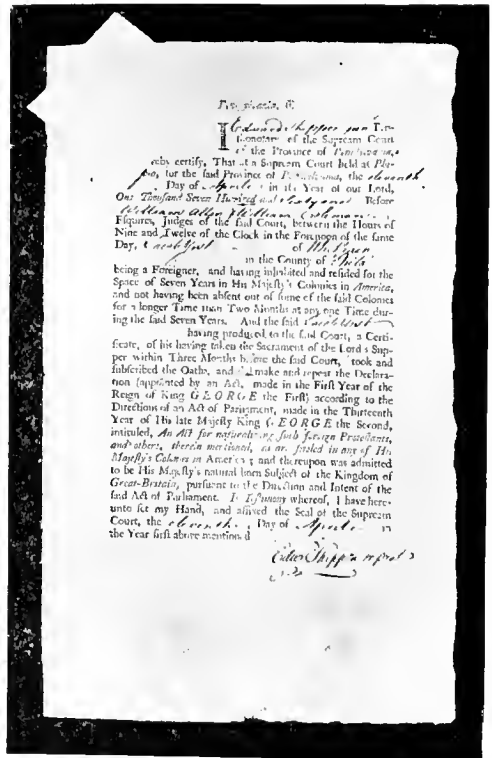 I Edward Shippen jun
of the Supream Court
of the Province of
eby certify, That at a Supream Court held at
for the said Province of the eleventh
Day of Aprile in the Year of our Lord,
One Thousand Seven Hundred and Sixty one Before
William Allen & William Coleman
Esquires, Judges of the said Court, between the Hours of
Nine and Twelve of the Clock in the Forenoon of the same
Day, Jacob Yost of
in the County of Phila
being a Foreigner, and having inhabited and resided for the
Space of Seven Years in His Majesty's Colonies in America,
and not having been absent out of some of the said Colonies
for a longer Time than Two Months at any one Time dur-
ing the said Seven Years. And the said Jacob Yost
having produced to the said Court, a Certi-
ficate, of his having taken the Sacrament of the Lord's Sup-
per within Three Months before the said Court, took and
subscribed the Oaths, and did make and repeat the Declara-
tion (appointed by an Act, made in the First Year of the
Reign of King GEORGE the First) according to the
Directions of an Act of Parliament, made in the Thirteenth
Year of His late Majesty King GEORGE the Second,
intituled, An Act for naturalizing such foreign Protestants,
and others, therein mentioned, as are settled in any of His
Majesty's Colonies in America; and thereupon was admitted
to be His Majesty's natural born Subject of the Kingdom of
Great-Britain, pursuant to the Direction and Intent of the
said Act of Parliament. In Testimony whereof, I have here-
unto set my Hand, and affixed the Seal of the Supream
Court, the eleventh Day of Aprile in
the Year first above mentioned
Edwd Shippen